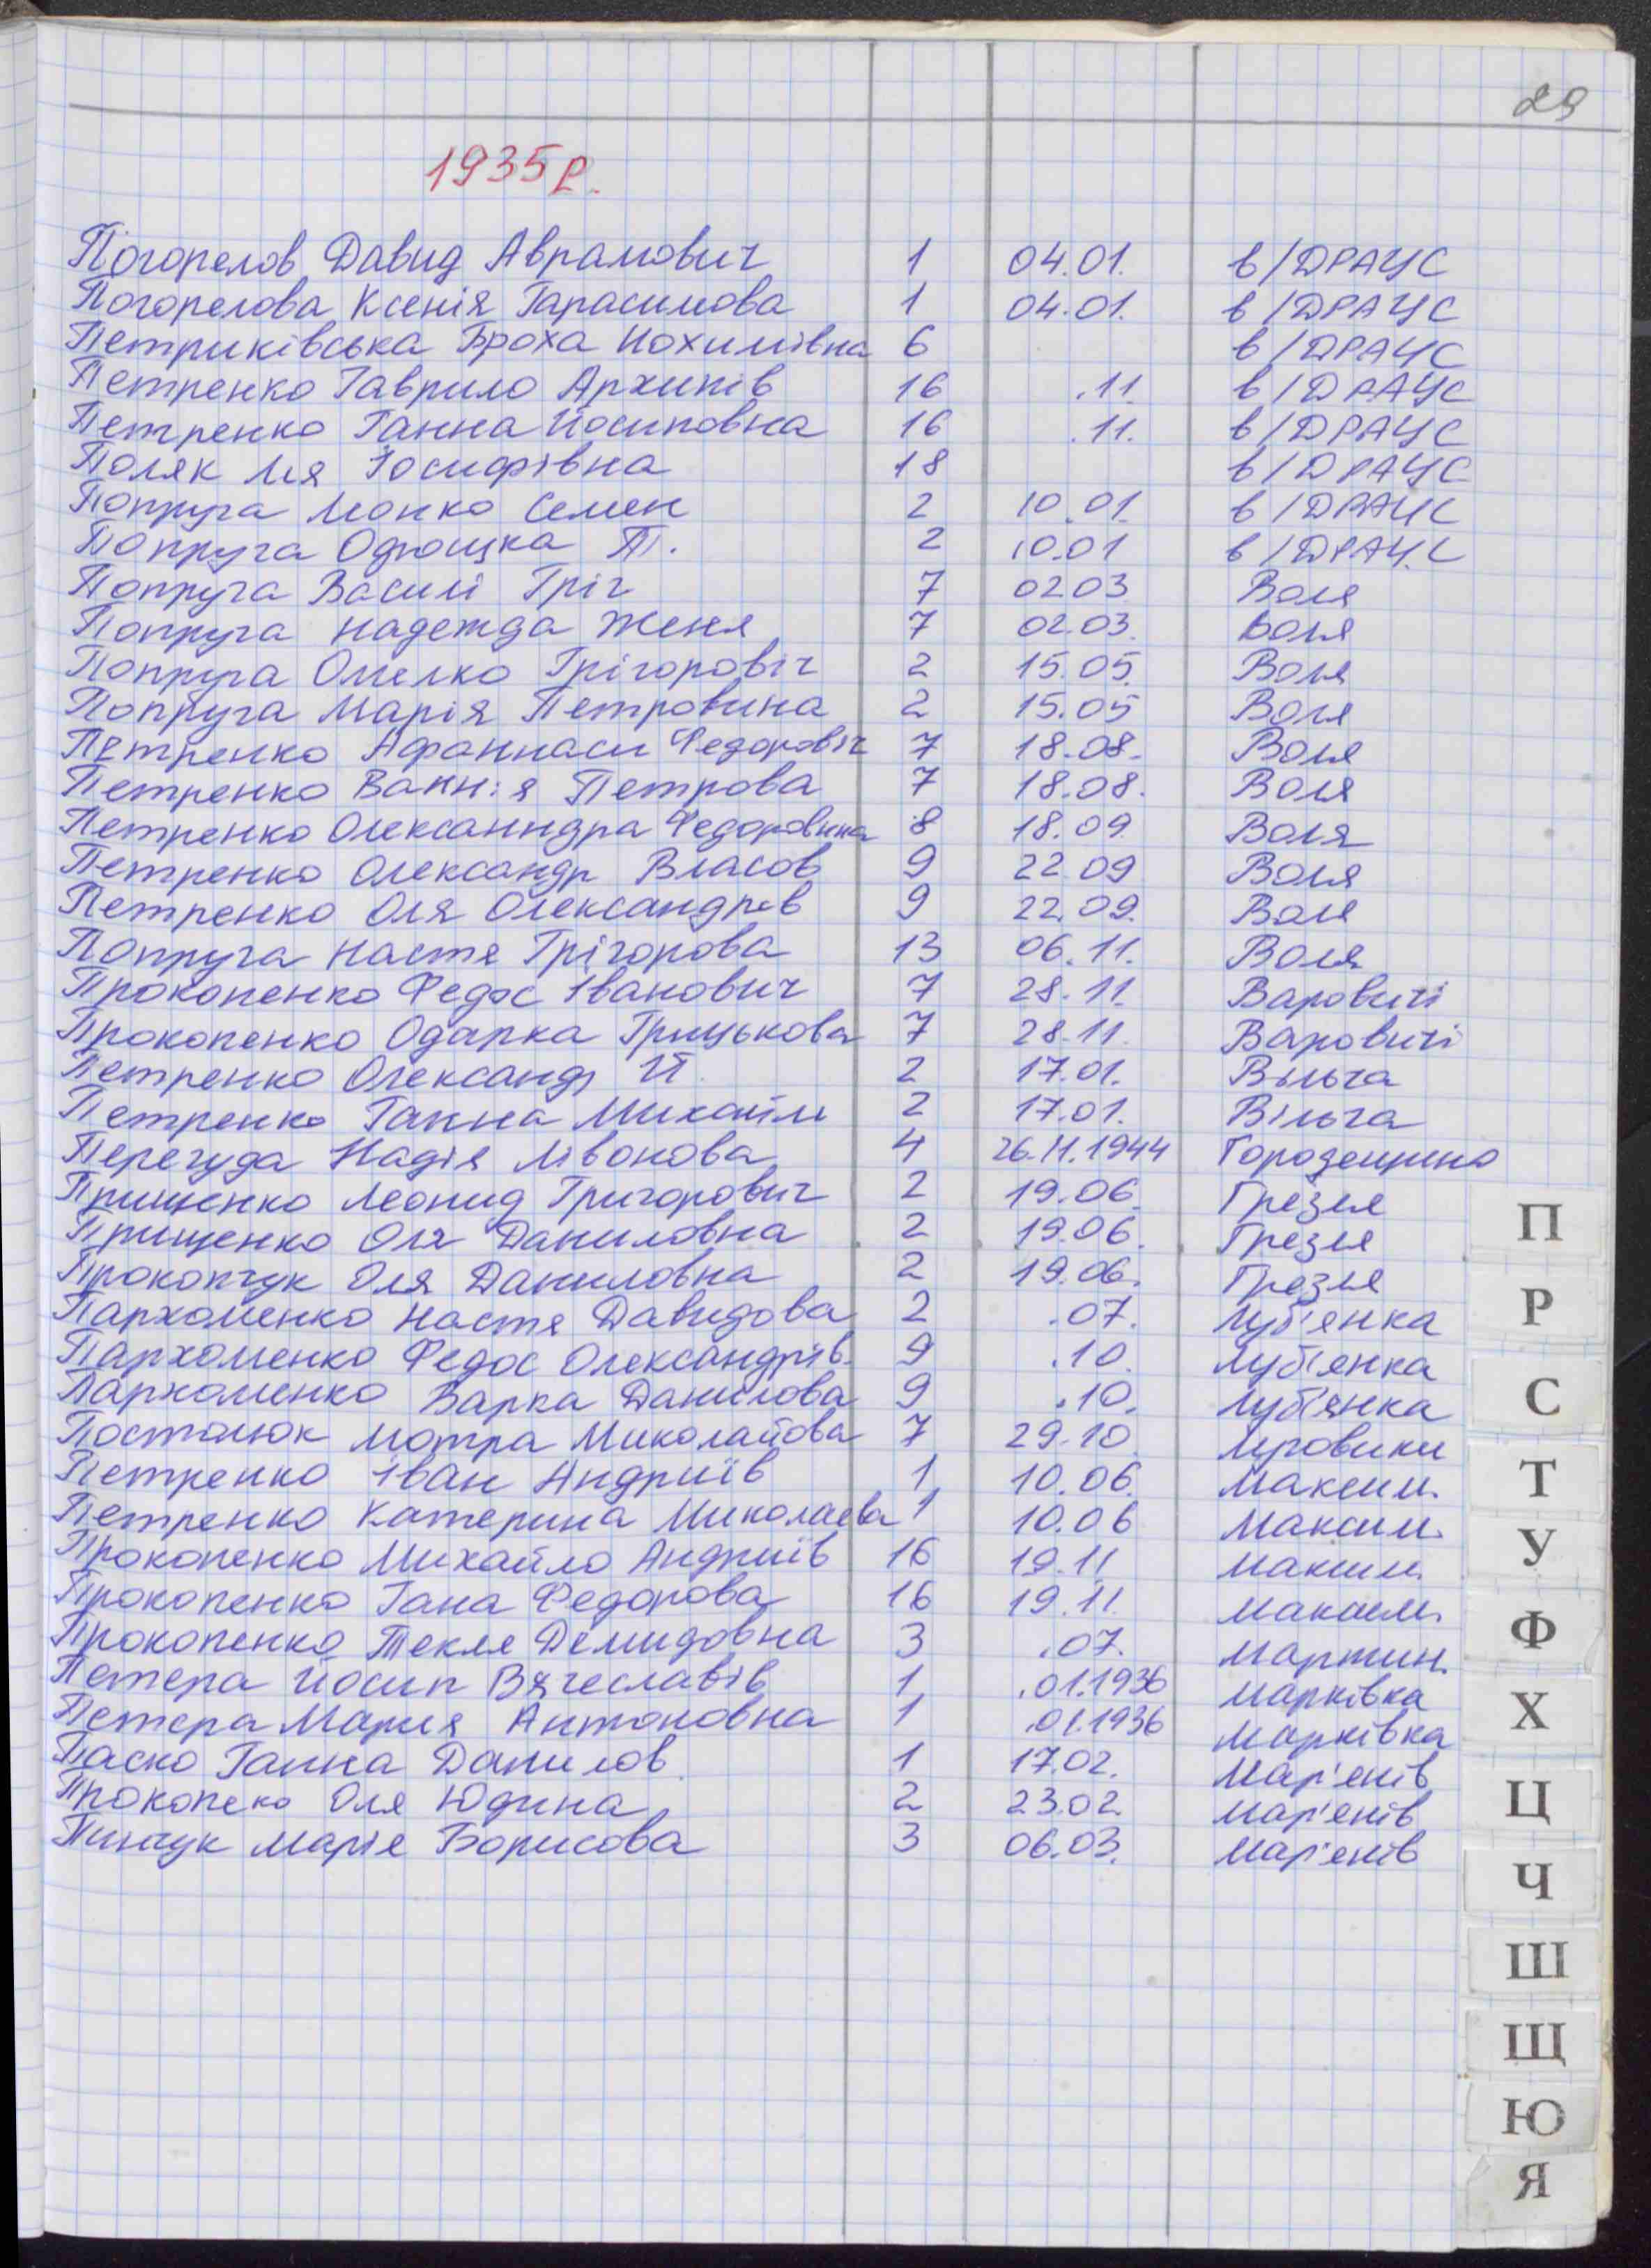 29
1935р.
Погорелов Давид Аврамович 1 04.01. в/ДРАЦС
Погорелова Ксенія Гарасимова 1 04.01. в/ДРАЦС
Петриківська Броха Йохимівна 6 в/ДРАЦС
Петренко Гаврило Архипів 16 .11. в/ДРАЦС
Петренко Ганна Йосиповна 16 .11. в/ДРАЦС
Поляк Лія Іосифівна 18 в/ДРАЦС
Попруга Монко Семен 2 10.01. в/ДРАЦС
Попруга П. 2 10.01 в/ДРАЦС
Попруга Василі Гріг 7 02 03 Воля
Попруга Надежда Женя 7 02.03. Воля
Попруга Омелко Грігоровіч 2 15.05. Воля
Попруга Марія Петровина 2 15.05 Воля
Петренко Афаннаси Федоровіч 7 18.08. Воля
Петренко Петрова 7 18.08. Воля
Петренко Олексанндра Федоровина 8 18.09. Воля
Петренко Олександр Власов 9 22.09 Воля
Петренко Оля Олександров 9 22.09. Воля
Попруга Настя Грігорова 13 06.11. Воля
Прокопенко Федос Іванович 7 28.11. Варовичі
Прокопенко Одарка Грицькова 7 28.11. Варовичі
Петренко Олександр Й. 2 17.01. Вільча
Петренко Ганна Михайли 2 17.01. Вільча
Перегуда Надія Лівонова 4 26.11.1944 Городещина
Прищенко Леонид Григорович 2 19.06. Грезля
Прищенко Оля Даниловна 2 19.06. Грезля
Прокопчук Оля Даниловна 2 19.06. Грезля
Пархоменко Настя Давидова 2 .07. Луб'янка
Пархоменко Федос Олександрів. 9 .10. Луб'янка
Пархоменко Варка Данилова 9 .10. Луб'янка
Постолюк Мотра Миколайова 7 29.10. Луговики
Петренко Іван Андриїв 1 10.06. Максим.
Петренко Катерина Миколаева 1 10.06 Максим.
Прокопенко Михайло Андриїв 16 19.11 Максим.
Прокопенко Гана Федорова 16 19.11. Максим.
Прокопенко Текля Демидовна 3 .07. Мартин.
Петера Йосип Вячеславів 1 .01.1936 Марківка
Петера Мария Антоновна 1 .01.1936 Марківка
Паско Ганна Данилов. 1 17.02. Мар'янів
Прокопеко Оля Юдина 2 23.02. Мар'янів
Пинчук Марія Борисова 3 06.03. Мар'янів
П
Р
С
Т
У
Ф
Х
Ц
Ч
Ш
Щ
Ю
Я